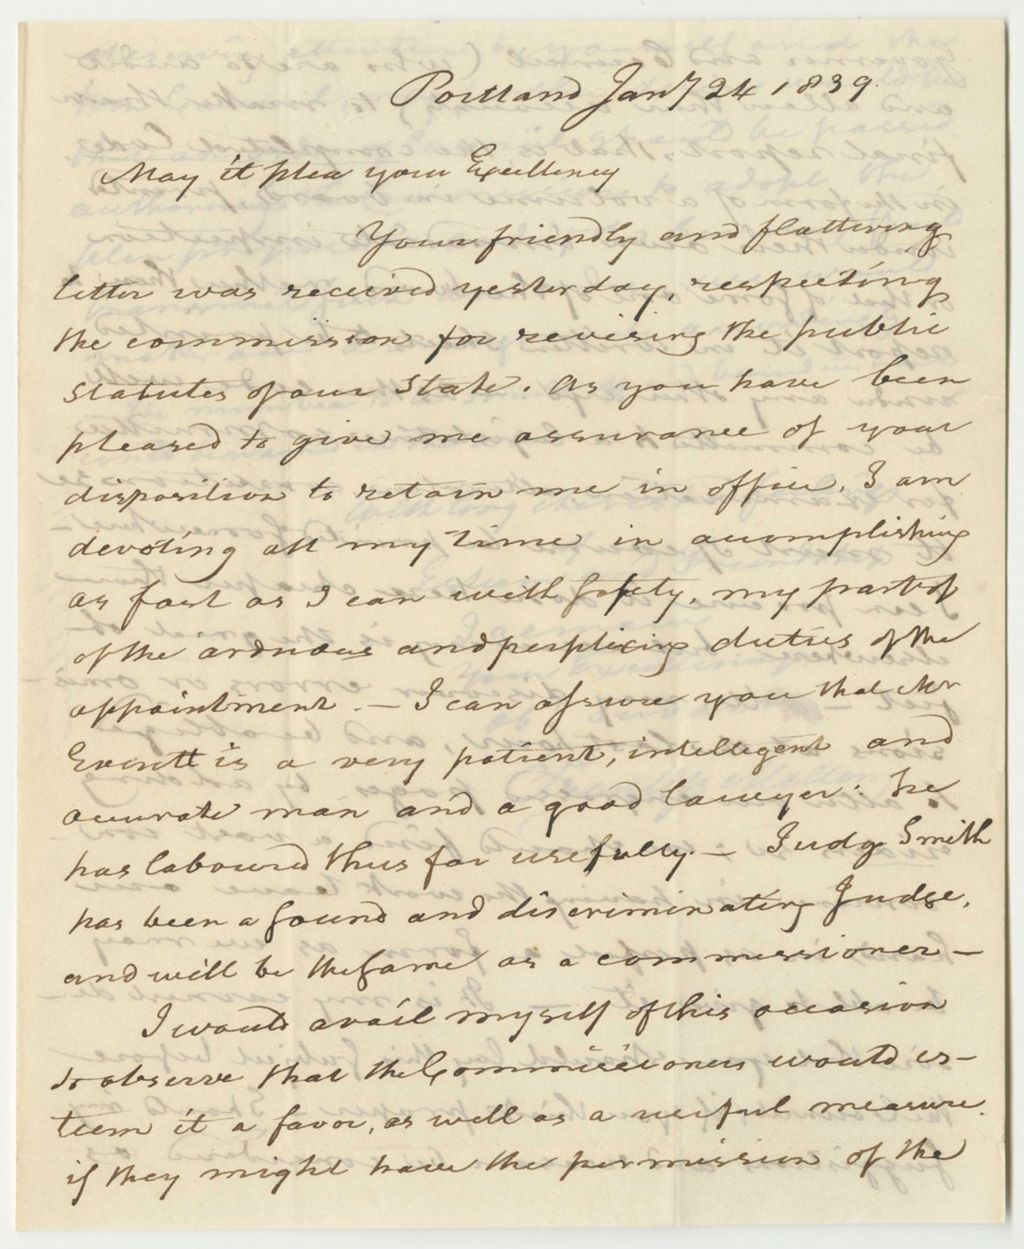 Portland Jany 24 1839.
May it pleas your Excellency
Your friendly and flattering
letter was received yesterday, respecting
the commission for revising the public
Statutes of our State. As you have been
pleased to give me assurance of your
disposition to retain me in office, I am
devoting all my time in accomplishing
as fast as I can with safety, my part of
of the arduous and perplexing duties of the
appointment. — I can assure you that Mr
Everett is a very patient, intelligent and
accurate man and a good lawyer: he
has laboured thus far usefully. — Judge Smith
has been a sound and discriminating Judge,
and will be the same as a commissioner —
I would avail myself of this occasion
to observe that the Commissioners would es-
teem it a favor, as well as a useful measure
if they might have the permission of the